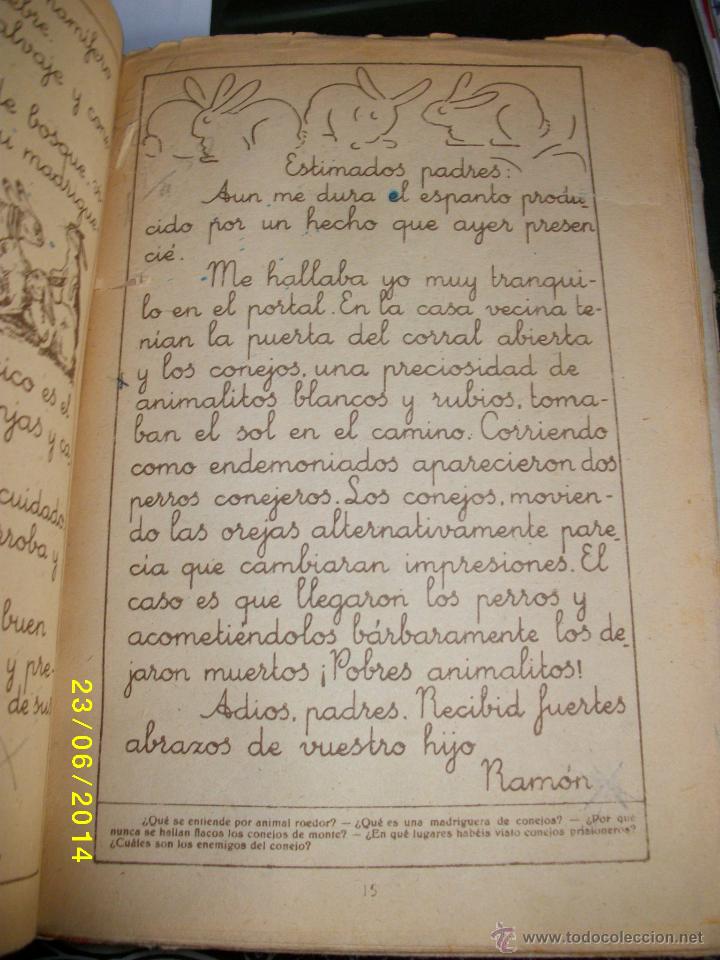 mamífero
salvaje y con
de bosque
madrigue
ico es el
njas y ca
cuidado
rroba y
buen
y pre-
de sus
Estimados padres:
Aun me dura el espanto produ
cido por un hecho que ayer presen
cié.
Me hallaba yo muy tranqui-
lo en el portal. En la casa vecina te-
nían la puerta del corral abierta
y los conejos, una preciosidad de
animalitos blancos y rubios, toma-
ban el sol en el camino. Corriendo
como endemoniados aparecieron dos
perros conejeros. Los conejos, movien-
do las orejas alternativamente pare-
cía que cambiaran impresiones. El
caso es que llegaron los perros y
acometiéndolos bárbaramente los de-
jaron muertos ¡Pobres animalitos!
Adios, padres. Recibid fuertes
abrazos de vuestro hijo
Ramón
¿Qué se entiende por animal roedor? — ¿Qué es una madriguera de conejos? — ¿Por qué
nunca se hallan flacos los conejos de monte? — ¿En qué lugares habéis visto conejos prisioneros?
¿Cuáles son los enemigos del conejo?
15
23/06/2014
© www.todocoleccion.net